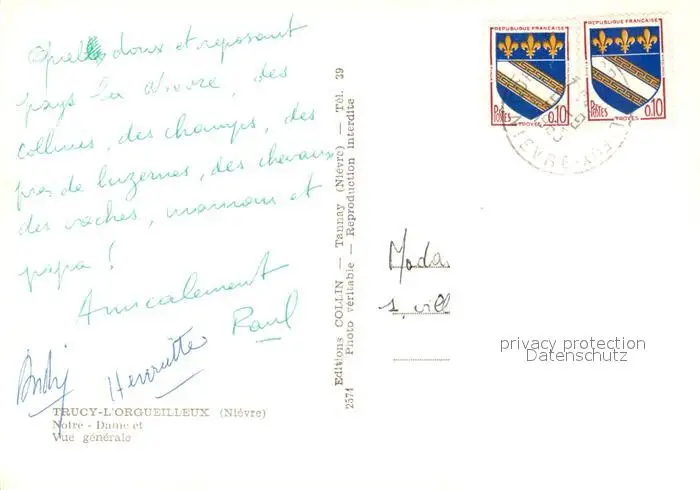 Quel doux et reposant
pays la Nièvre, des
collines, des champs, des
prés de luzernes, des chevaux
des vaches, maman et
papa !
Amicalement
Raul
Henriette
TRUCY-L'ORGUEILLEUX (Nièvre)
Notre - Dame et
Vue générale
Editions COLLIN — Tannay (Nièvre) — Tél. 39
2571 Photo véritable - Reproduction Interdite
REPUBLIQUE FRANÇAISE
Postes 0,10
TROYES
REPUBLIQUE FRANÇAISE
Postes 0,10
TROYES
NIEVRE
Mada
1, vill
privacy protection
Datenschutz